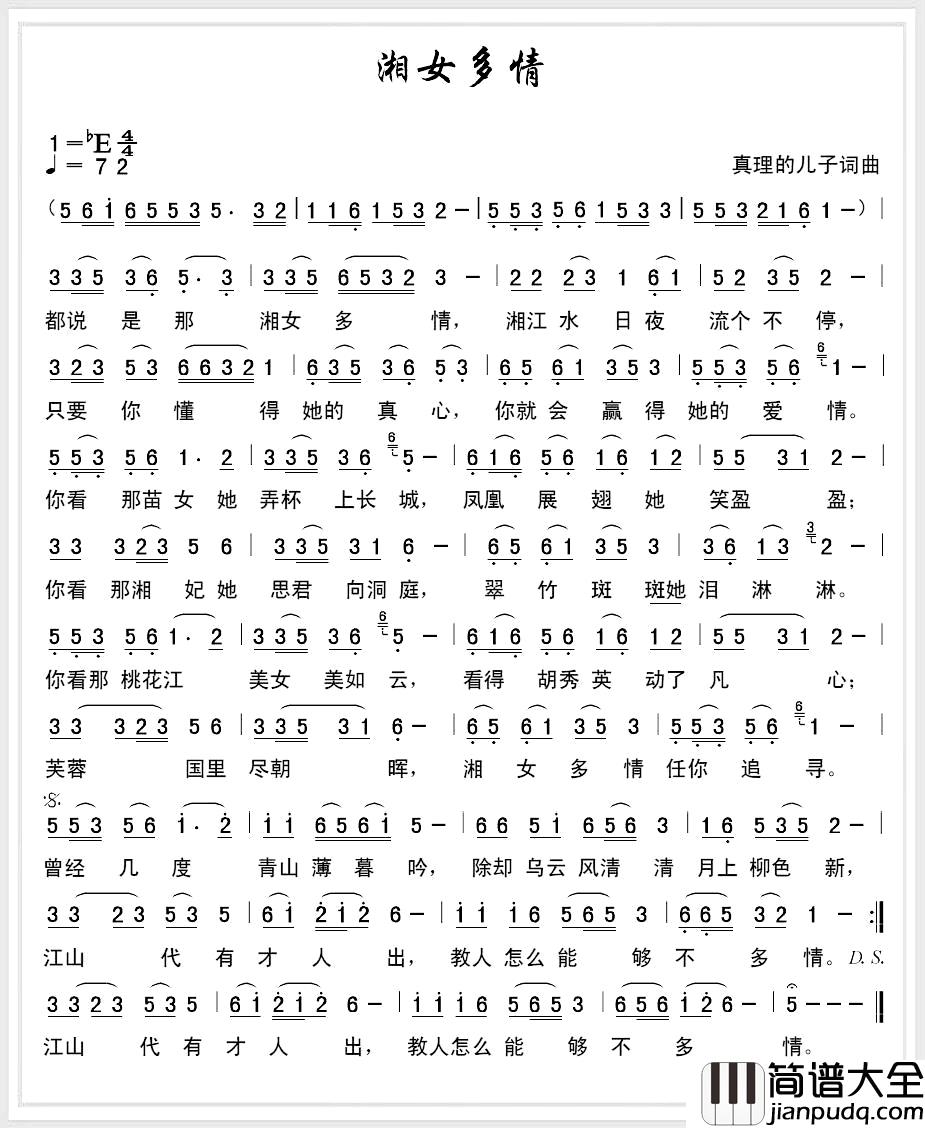 湘女多情
1=♭E 4/4
♩= 72
真理的儿子词曲
(5 6 i 6 5 5 3 5· 3 2 | 1 1 6 1 5 3 2 – | 5 5 3 5 6 1 5 3 3 | 5 5 3 2 1 6 1 – ) |
3 3 5 3 6 5· 3 | 3 3 5 6 5 3 2 3 – | 2 2 2 3 1 6 1 | 5 2 3 5 2 – |
都说 是 那 湘女 多 情, 湘江 水 日 夜 流个 不 停,
3 2 3 5 3 6 6 3 2 1 | 6 3 5 3 6 5 3 | 6 5 6 1 3 5 3 | 5 5 3 5 6 6 1 – |
只要 你 懂 得 她的 真 心, 你就 会 赢 得 她的 爱 情。
5 5 3 5 6 1· 2 | 3 3 5 3 6 6 5 – | 6 1 6 5 6 1 6 1 2 | 5 5 3 1 2 – |
你看 那苗 女 她 弄杯 上长 城, 凤凰 展 翅 她 笑盈 盈;
3 3 3 2 3 5 6 | 3 3 5 3 1 6 – | 6 5 6 1 3 5 3 | 3 6 1 3 3 2 – |
你看 那湘 妃 她 思君 向洞 庭, 翠 竹 斑 斑她 泪 淋 淋。
5 5 3 5 6 1· 2 | 3 3 5 3 6 6 5 – | 6 1 6 5 6 1 6 1 2 | 5 5 3 1 2 – |
你看那 桃花江 美女 美如 云, 看得 胡秀 英 动了 凡 心;
3 3 3 2 3 5 6 | 3 3 5 3 1 6 – | 6 5 6 1 3 5 3 | 5 5 3 5 6 6 1 – |
芙蓉 国里 尽朝 晖, 湘 女 多 情 任你 追 寻。
5 5 3 5 6 i· 2 | i i 6 5 6 i 5 – | 6 6 5 i 6 5 6 3 | 1 6 5 3 5 2 – |
曾经 几 度 青山 薄 暮 吟, 除却 乌云 风清 清 月上 柳色 新,
3 3 2 3 5 3 5 | 6 i 2 i 2 6 – | i i i 6 5 6 5 3 | 6 6 5 3 2 1 – :|
江山 代 有 才 人 出, 教人 怎么 能 够 不 多 情。D.S.
3 3 2 3 5 3 5 | 6 i 2 i 2 6 – | i i i 6 5 6 5 3 | 6 5 6 i 2 6 – | 5 – – – |
江山 代 有 才 人 出, 教人怎么 能 够 不 多 情。
简谱大全
jianpudq.com